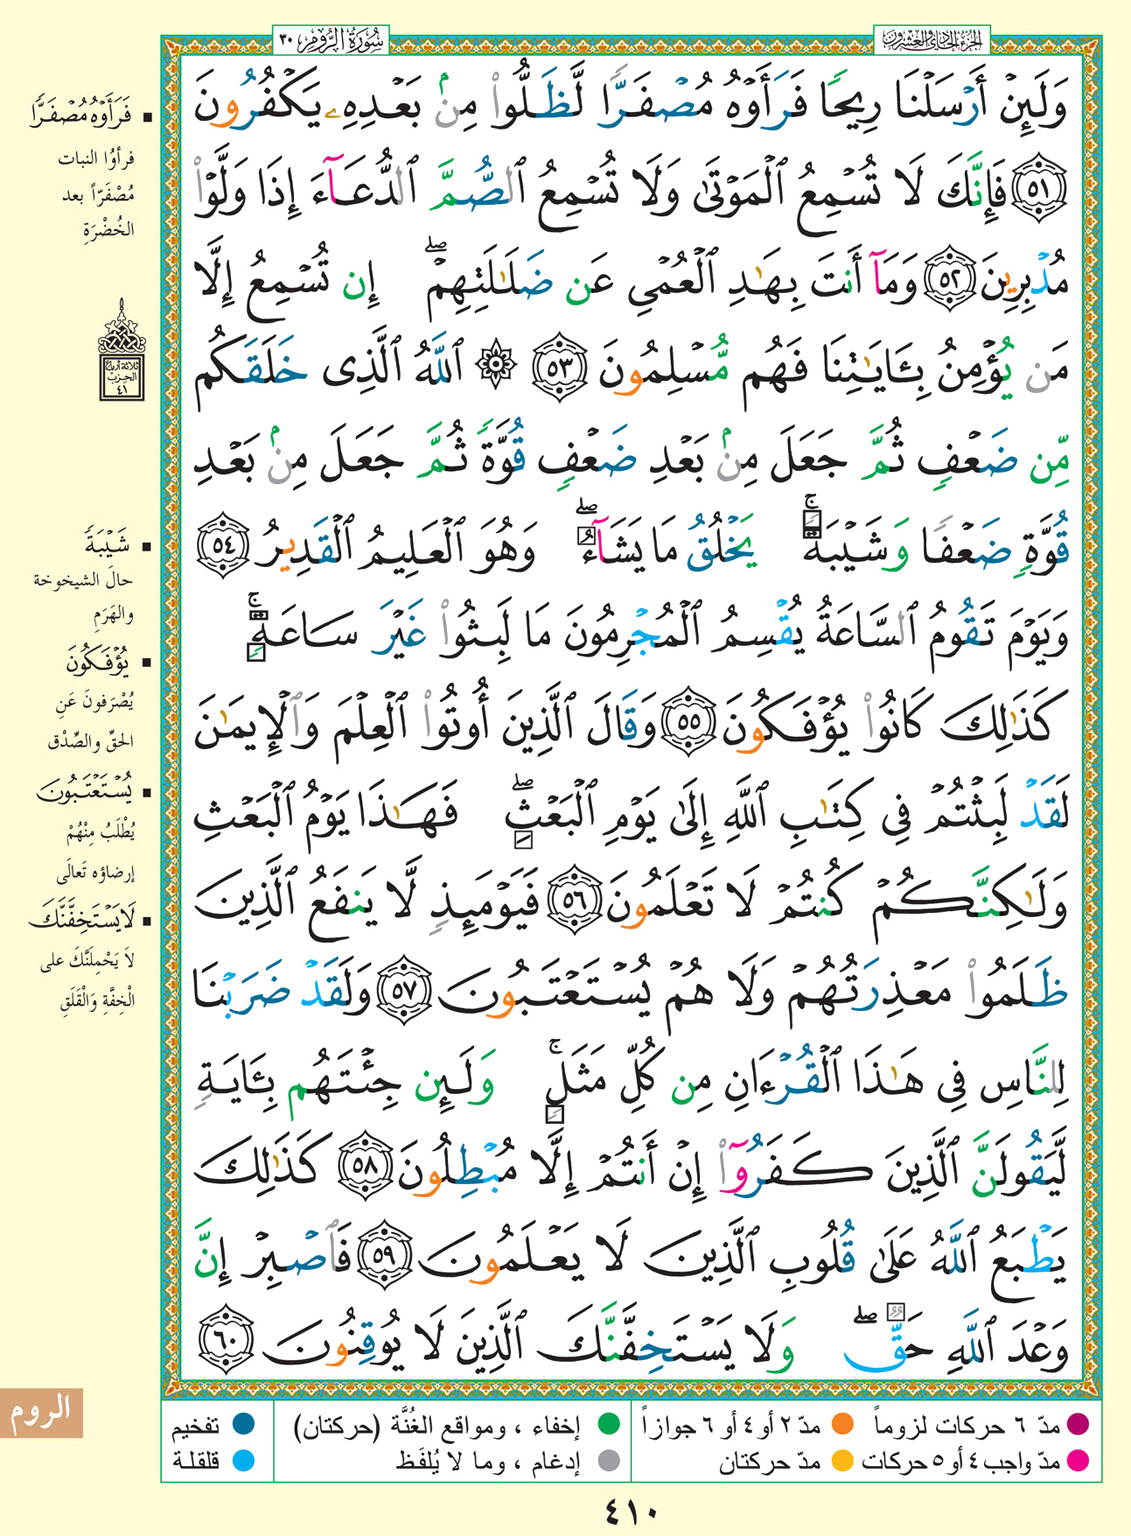 سُورَةُ الرُّومِ ٣٠
الجزء الحادي والعشرون
وَلَئِنْ أَرْسَلْنَا رِيحًا فَرَأَوْهُ مُصْفَرًّا لَّظَلُّوا۟ مِنۢ بَعْدِهِۦ يَكْفُرُونَ
٥١ فَإِنَّكَ لَا تُسْمِعُ ٱلْمَوْتَىٰ وَلَا تُسْمِعُ ٱلصُّمَّ ٱلدُّعَآءَ إِذَا وَلَّوْا۟
مُدْبِرِينَ ٥٢ وَمَآ أَنتَ بِهَـٰدِ ٱلْعُمْىِ عَن ضَلَـٰلَتِهِمْ ۖ إِن تُسْمِعُ إِلَّا
مَن يُؤْمِنُ بِـَٔايَـٰتِنَا فَهُم مُّسْلِمُونَ ٥٣ ۞ ٱللَّهُ ٱلَّذِى خَلَقَكُم
مِّن ضَعْفٍ ثُمَّ جَعَلَ مِنۢ بَعْدِ ضَعْفٍ قُوَّةً ثُمَّ جَعَلَ مِنۢ بَعْدِ
قُوَّةٍ ضَعْفًا وَشَيْبَةً ۚ يَخْلُقُ مَا يَشَآءُ ۖ وَهُوَ ٱلْعَلِيمُ ٱلْقَدِيرُ ٥٤
وَيَوْمَ تَقُومُ ٱلسَّاعَةُ يُقْسِمُ ٱلْمُجْرِمُونَ مَا لَبِثُوا۟ غَيْرَ سَاعَةٍ ۚ
كَذَٰلِكَ كَانُوا۟ يُؤْفَكُونَ ٥٥ وَقَالَ ٱلَّذِينَ أُوتُوا۟ ٱلْعِلْمَ وَٱلْإِيمَـٰنَ
لَقَدْ لَبِثْتُمْ فِى كِتَـٰبِ ٱللَّهِ إِلَىٰ يَوْمِ ٱلْبَعْثِ ۖ فَهَـٰذَا يَوْمُ ٱلْبَعْثِ
وَلَـٰكِنَّكُمْ كُنتُمْ لَا تَعْلَمُونَ ٥٦ فَيَوْمَئِذٍ لَّا يَنفَعُ ٱلَّذِينَ
ظَلَمُوا۟ مَعْذِرَتُهُمْ وَلَا هُمْ يُسْتَعْتَبُونَ ٥٧ وَلَقَدْ ضَرَبْنَا
لِلنَّاسِ فِى هَـٰذَا ٱلْقُرْءَانِ مِن كُلِّ مَثَلٍ ۚ وَلَئِن جِئْتَهُم بِـَٔايَةٍ
لَّيَقُولَنَّ ٱلَّذِينَ كَفَرُوٓا۟ إِنْ أَنتُمْ إِلَّا مُبْطِلُونَ ٥٨ كَذَٰلِكَ
يَطْبَعُ ٱللَّهُ عَلَىٰ قُلُوبِ ٱلَّذِينَ لَا يَعْلَمُونَ ٥٩ فَٱصْبِرْ إِنَّ
وَعْدَ ٱللَّهِ حَقٌّ ۖ وَلَا يَسْتَخِفَّنَّكَ ٱلَّذِينَ لَا يُوقِنُونَ ٦٠
فَرَأَوْهُ مُصْفَرًّا
فرأوُا النبات
مُصْفَرّاً بعد
الخُضْرَةِ
ثلاثة أرباع
الحزب
٤١
شَيْبَةً
حالَ الشيخوخة
والهَرَمِ
يُؤْفَكُونَ
يُصْرَفونَ عَنِ
الحقِّ والصِّدْق
يُسْتَعْتَبُونَ
يُطْلَبُ مِنْهُمْ
إرضاؤه تَعالَى
لَا يَسْتَخِفَّنَّكَ
لاَ يَحْمِلَنَّكَ على
الْخِفَّةِ وَالْقَلَقِ
الروم
مدّ ٦ حركات لزوماً
مدّ ٢ أو ٤ أو ٦ جوازاً
إخفاء ، ومواقع الغُنَّة (حركتان)
تفخيم
مدّ واجب ٤ أو ٥ حركات
مدّ حركتان
إدغام ، وما لا يُلفَظ
قلقلة
٤١٠